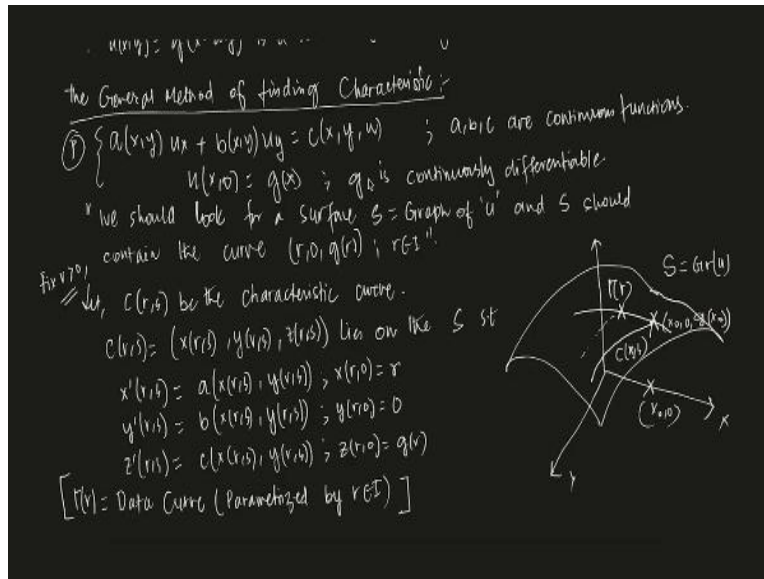 the General Method of finding Characteristic :-
(P) { a(x,y) ux + b(x,y) uy = c(x,y,u) ; a,b,c are continuous functions.
u(x,0) = g(x) ; g is continuously differentiable.
" we should look for a surface S = Graph of 'u' and S should
contain the curve (r,0,g(r)) ; r∈I ".
Fix r>0,
let, C(r,s) be the characteristic curve.
C(r,s) = (x(r,s), y(r,s), z(r,s)) lies on the S st
x'(r,s) = a(x(r,s), y(r,s)) ; x(r,0) = r
y'(r,s) = b(x(r,s), y(r,s)) ; y(r,0) = 0
z'(r,s) = c(x(r,s), y(r,s)) ; z(r,0) = g(r)
[Γ(r) = Data Curve (Parametrized by r∈I) ]
S = Gr(u)
Γ(r)
(x0,0,g(x0))
C(r,s)
(x0,0)
x
y